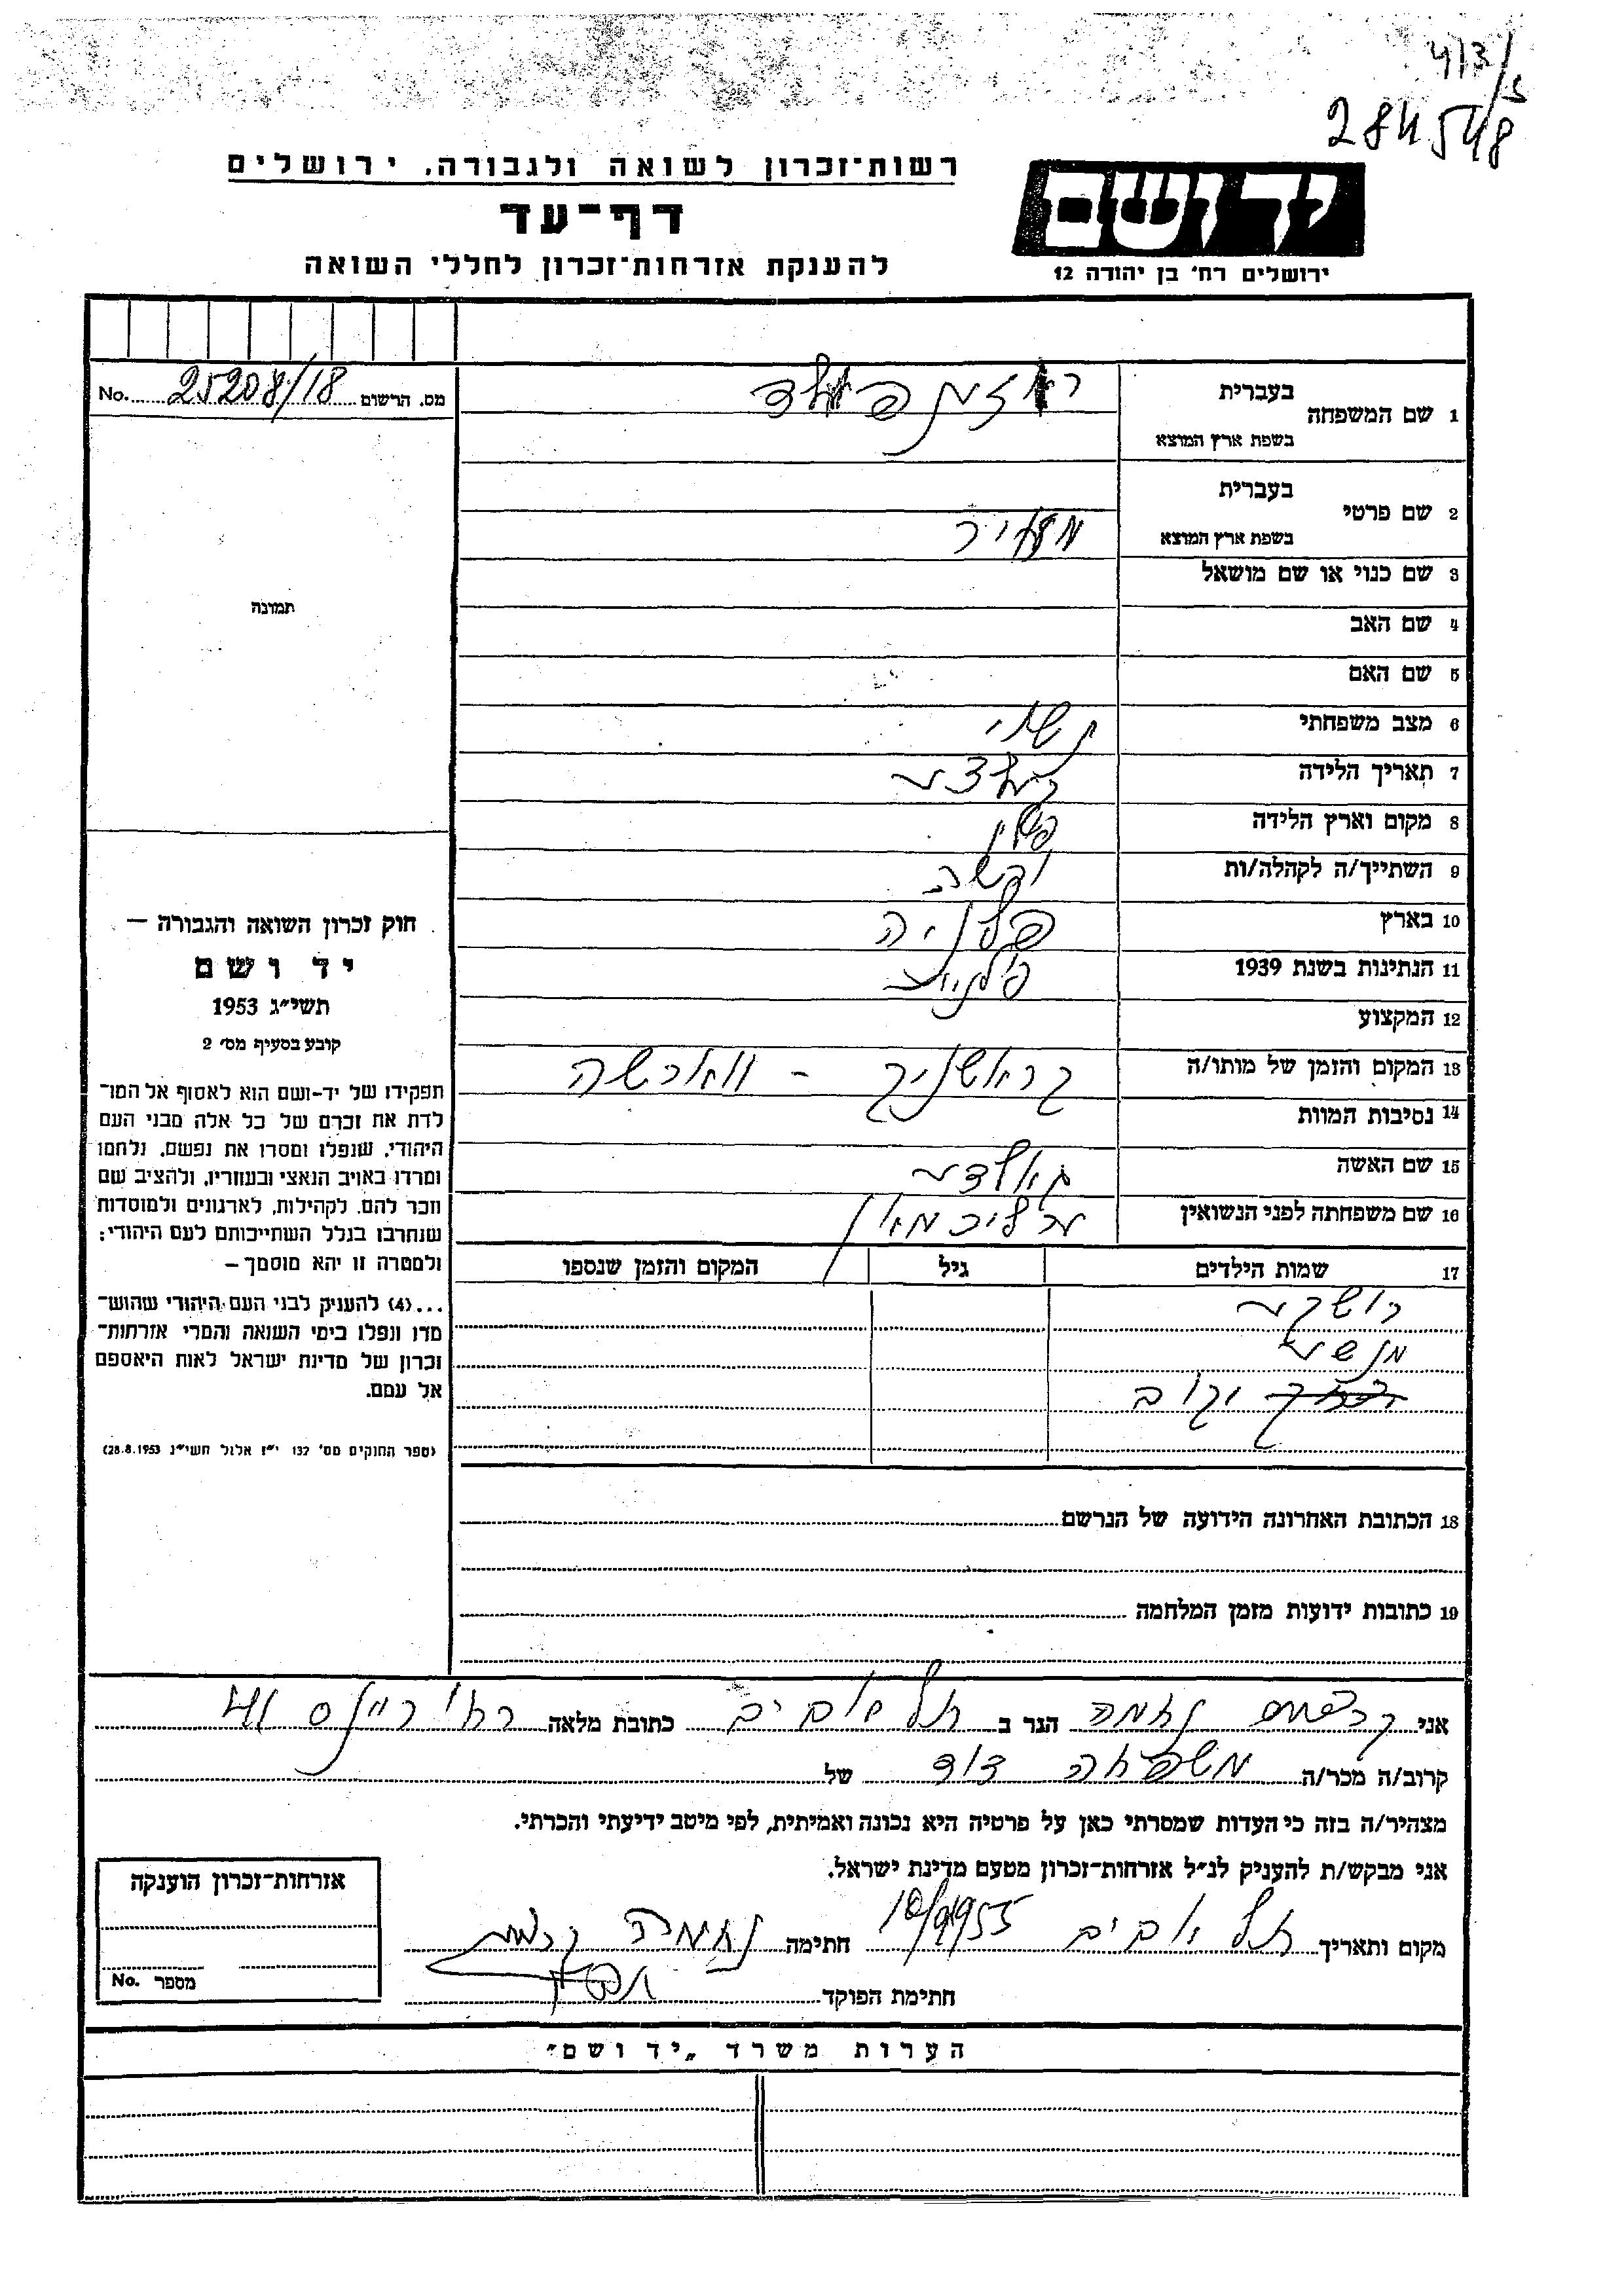 413/5
284548
רשות־זכרון לשואה ולגבורה, ירושלים
דף־עד
להענקת אזרחות־זכרון לחללי השואה
יד ושם
ירושלים רח' בן יהודה 12
מס. הרשום 25208/18 No.
תמונה
חוק זכרון השואה והגבורה —
יד ושם
תשי״ג 1953
קובע בסעיף מס׳ 2
תפקידו של יד-ושם הוא לאסוף אל המו־
לדת את זכרם של כל אלה מבני העם
היהודי, שנפלו ומסרו את נפשם, נלחמו
ומרדו באויב הנאצי ובעוזריו, ולהציב שם
וזכר להם, לקהילות, לארגונים ולמוסדות
שנחרבו בגלל השתייכותם לעם היהודי;
ולמטרה זו יהא מוסמך —
...(4) להעניק לבני העם היהודי שהוש־
מדו ונפלו בימי השואה והמרי אזרחות־
זכרון של מדינת ישראל לאות היאספם
אל עמם.
(ספר החוקים מס׳ 132 י״ז אלול תשי״ג 28.8.1953)
1 שם המשפחה בעברית רוזנפלד
בשפת ארץ המוצא
2 שם פרטי בעברית
בשפת ארץ המוצא מאיר
3 שם כנוי או שם מושאל
4 שם האב
5 שם האם
6 מצב משפחתי נשוי
7 תאריך הלידה
8 מקום וארץ הלידה פולין
9 השתייך/ה לקהלה/ות
10 בארץ פולניה
11 הנתינות בשנת 1939 פולנית
12 המקצוע
13 המקום והזמן של מותו/ה קראשניק - ווארשה
14 נסיבות המוות
15 שם האשה גאלדה
16 שם משפחתה לפני הנשואין
17 שמות הילדים גיל המקום והזמן שנספו
מנשה
יעקב
18 הכתובת האחרונה הידועה של הנרשם
19 כתובות ידועות מזמן המלחמה
אני נחמה הגר ב תל אביב כתובת מלאה
קרוב/ה מכר/ה משפחה דוד של
מצהיר/ה בזה כי העדות שמסרתי כאן על פרטיה היא נכונה ואמיתית, לפי מיטב ידיעתי והכרתי.
אני מבקש/ת להעניק לנ״ל אזרחות־זכרון מטעם מדינת ישראל.
מקום ותאריך תל אביב 10/9/1955 חתימה נחמה
חתימת הפוקד
אזרחות־זכרון הוענקה
מספר No.
הערות משרד „יד ושם״